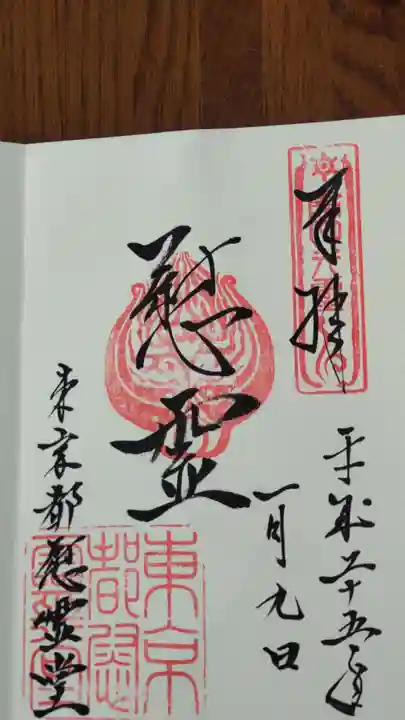 奉拝
平成二十五年
一月九日
慰霊
東京都慰霊堂
東京都慰霊堂